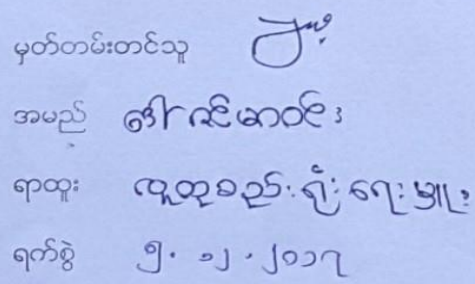 မှတ်တမ်းတင်သူ
အမည် ဒေါ်ငြိမ်းမာဝင်း
ရာထူး လူထုစည်းရုံးရေးမှူး
ရက်စွဲ ၅.၁၂.၂၀၁၇